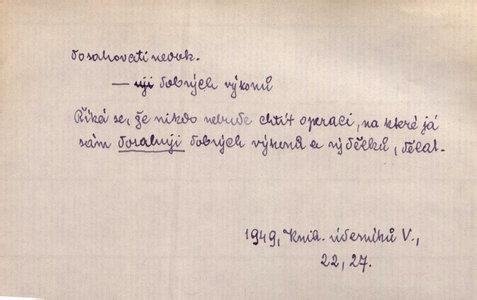 dosahovati nedok.
— uji dobrých výkonů
Říká se, že nikdo nebude chtít operaci, na které já
sám dosahuji dobrých výkonů a výdělků, dělat.
1949, Knid. úderníků V.,
22, 27.